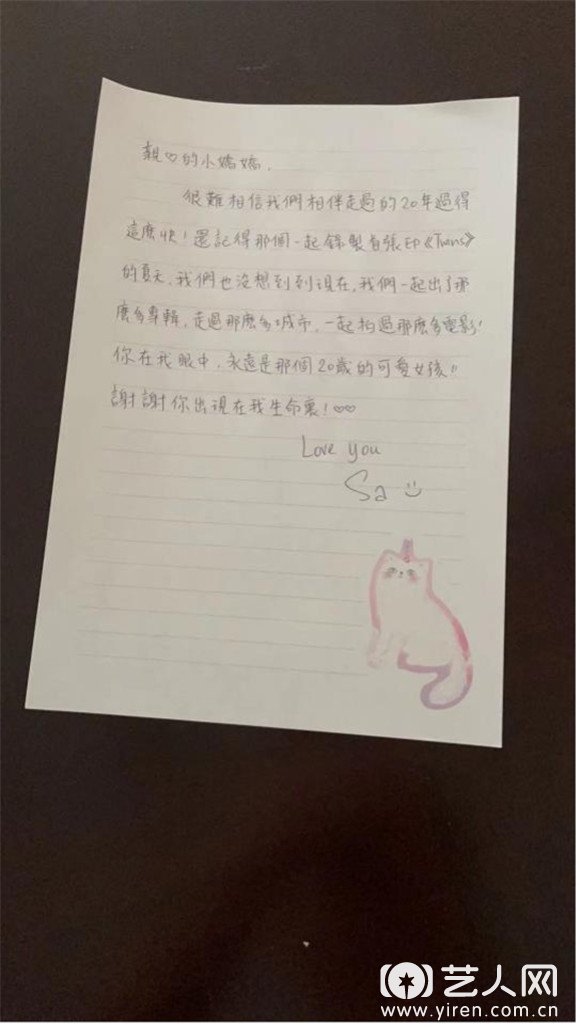 親♡的小嬌嬌，
很難相信我們相伴走過的20年過得
這麽快！還記得那個一起錄製首張EP《Twins》
的夏天，我們也沒想到到現在，我們一起出了那
麽多專輯，走過那麽多城市，一起拍過那麽多電影！
你在我眼中，永遠是那個20歲的可愛女孩！！
謝謝你出現在我生命裏！♡♡
Love you
Sa
艺人网
www.yiren.com.cn